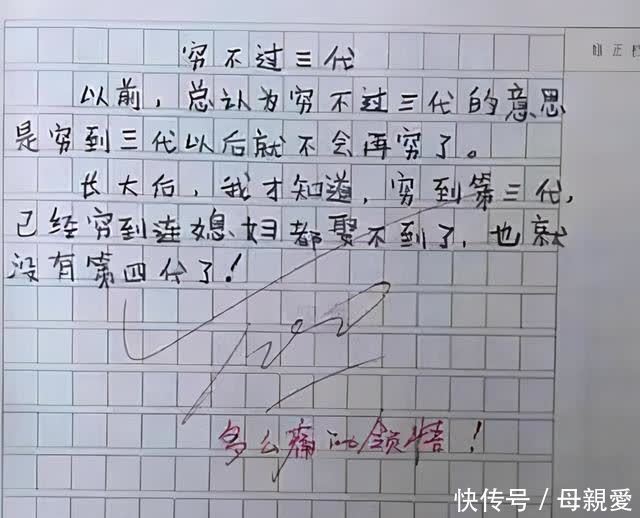 穷不过三代
以前，总认为穷不过三代的意思
是穷到三代以后就不会再穷了。
长大后，我才知道，穷到第三代，
已经穷到连媳妇都娶不到了，也就
没有第四代了！
100
多么痛的领悟！
快传号 / 母親愛